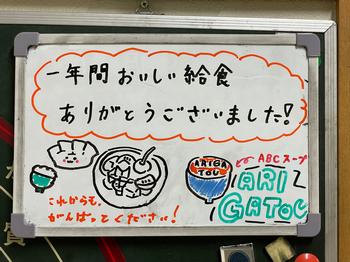 一年間おいしい給食
ありがとうございました!
ARIGA
TOU
ABCスープ
ARI
GATOU
これからも、
がんばってください!
質